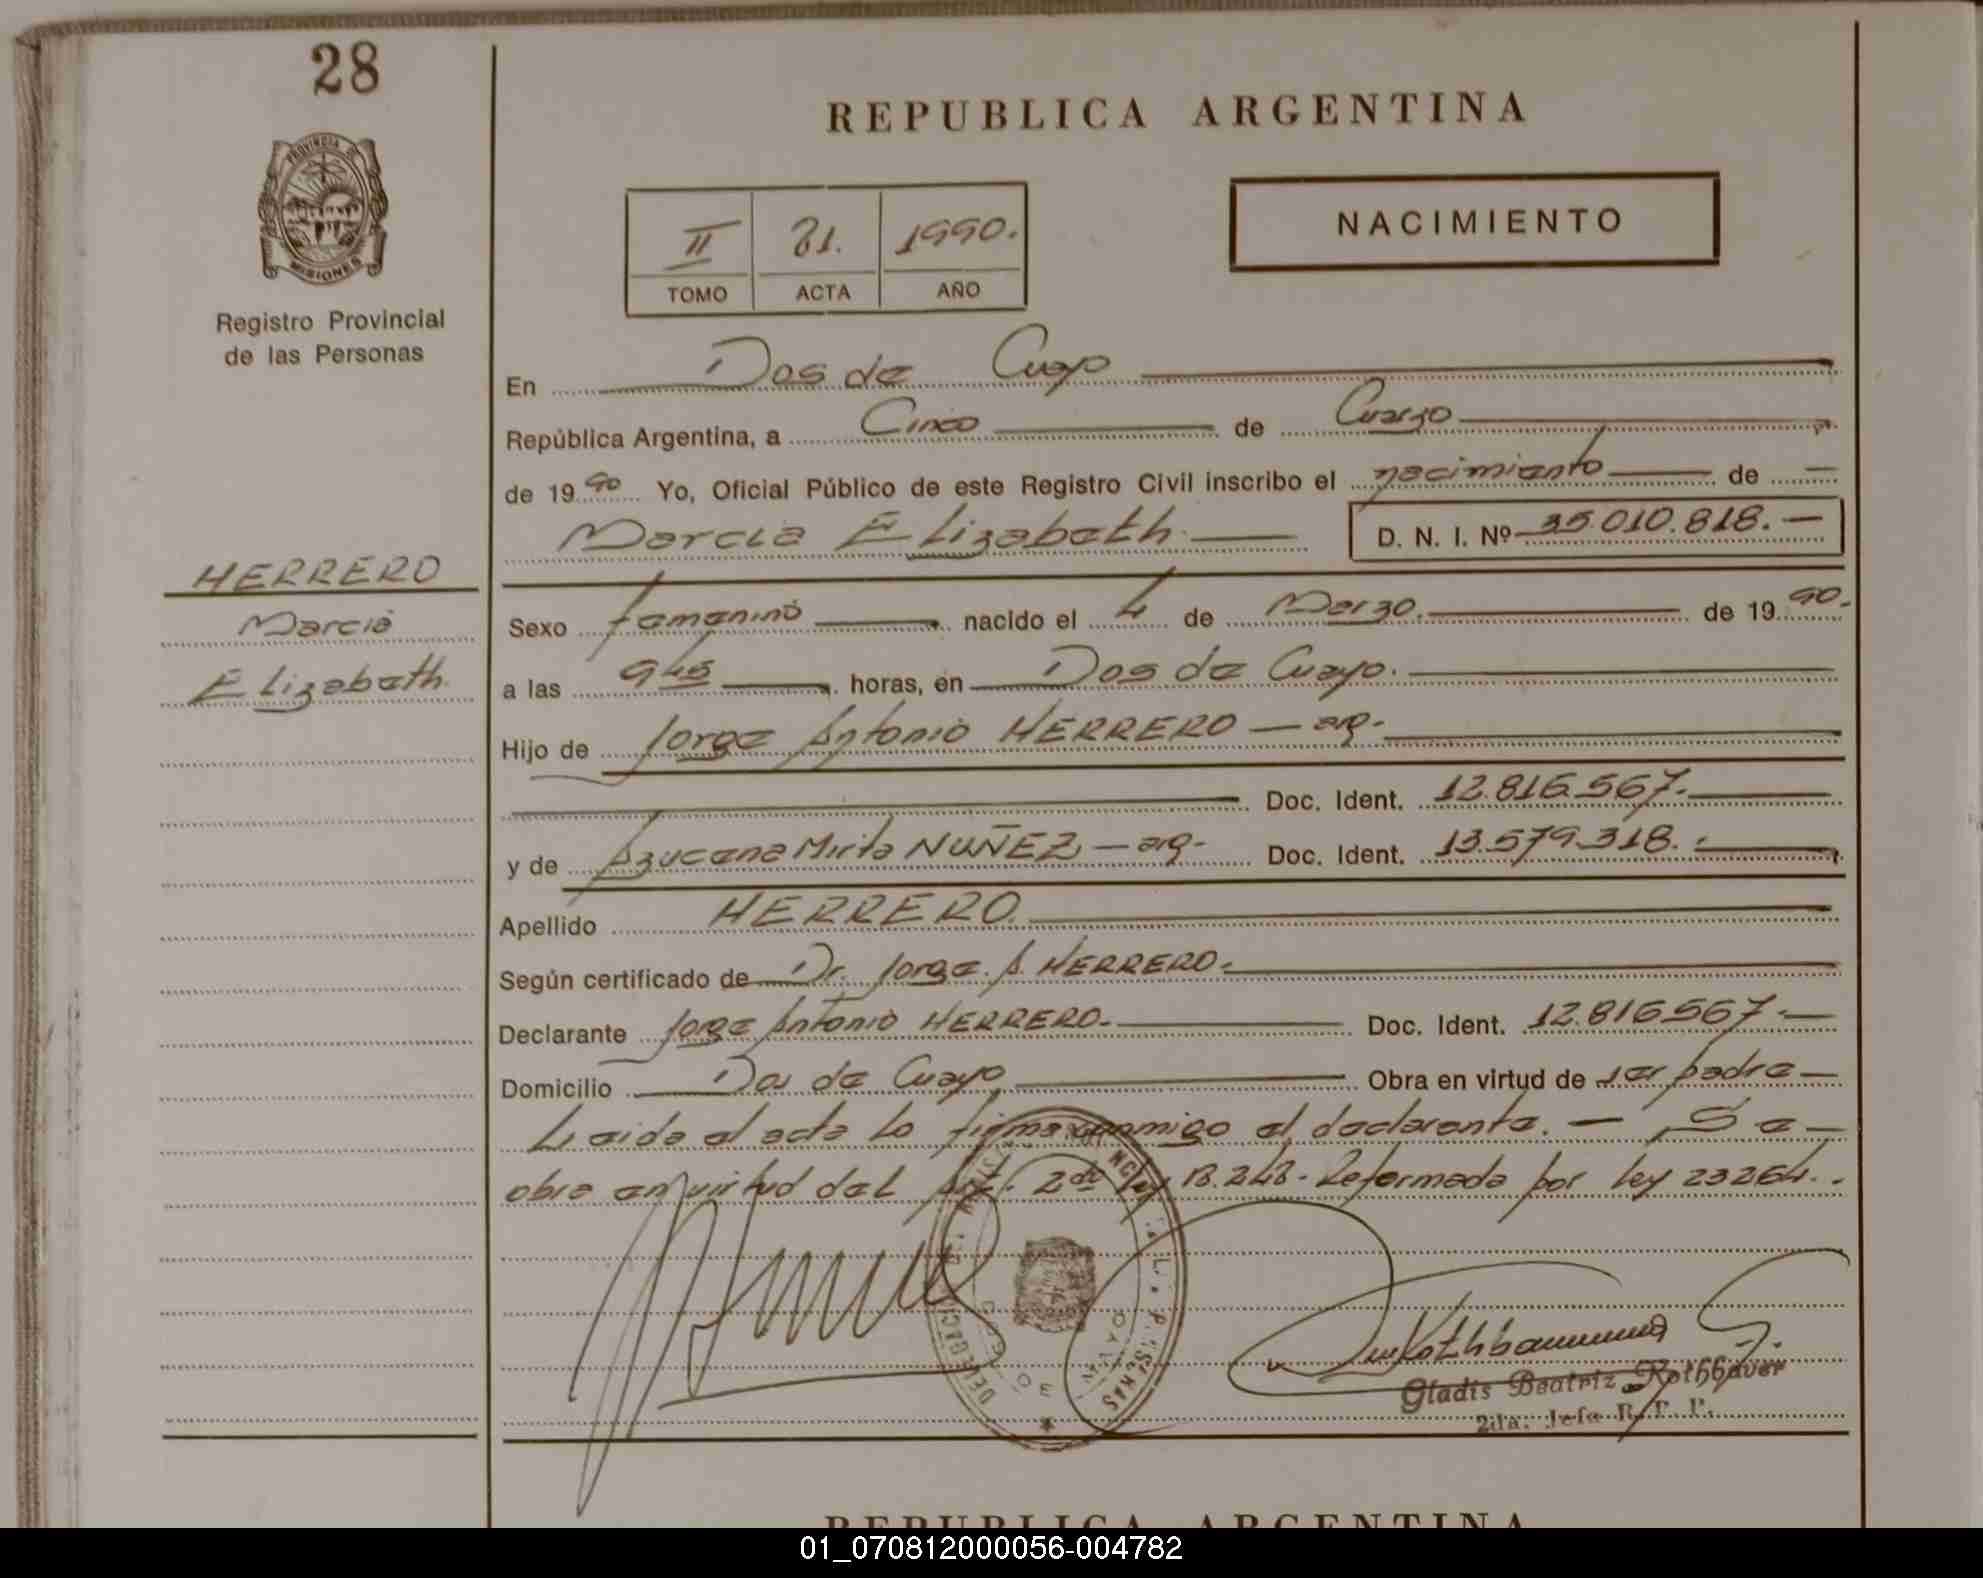 28
REPUBLICA ARGENTINA
PROVINCIA DE
MISIONES
Registro Provincial
de las Personas
II 81. 1990.
TOMO ACTA AÑO
NACIMIENTO
En Dos de Mayo
República Argentina, a Cinco de Marzo
de 1990 Yo, Oficial Público de este Registro Civil inscribo el nacimiento de
Marcia Elizabeth D. N. I. Nº 35.010.818.
HERRERO
Marcia
Elizabeth
Sexo femenino nacido el 4 de Marzo. de 1990.
a las 9hs horas, en Dos de Mayo.
Hijo de Jorge Antonio HERRERO - arg.
Doc. Ident. 12.816.567.
y de Azucena Mirta NUÑEZ - arg. Doc. Ident. 13.579.318.
Apellido HERRERO.
Según certificado de Dr. Jorge. A. HERRERO.
Declarante Jorge Antonio HERRERO. Doc. Ident. 12.816.567.
Domicilio Dos de Mayo Obra en virtud de ser padre
Leida el acta la firma conmigo el declarante. - Se
obra en virtud del Art. 2do ley 18.248. Reformada por ley 23264.
Gladis Beatriz Rothbauer
2da. Jefe R. P. P.
REPUBLICA ARGENTINA
01_070812000056-004782